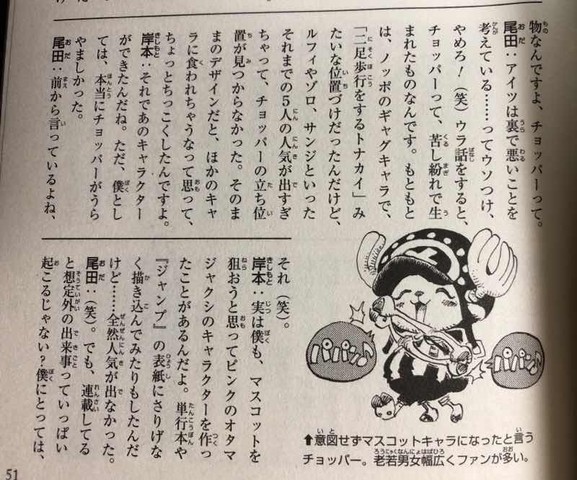 物なんですよ、チョッパーって。
尾田：アイツは裏で悪いことを
考えている……ってウソつけ、
やめろ！（笑）ウラ話をすると、
チョッパーって、苦し紛れで生
まれたものなんです。もともと
は、ノッポのギャグキャラで、
「二足歩行をするトナカイ」み
たいな位置づけだったんだけど、
ルフィやゾロ、サンジといった
それまでの5人の人気が出すぎ
ちゃって、チョッパーの立ち位
置が見つからなかった。そのま
まのデザインだと、ほかのキャ
ラに食われちゃうなって思って、
ちょっとちっこくしたんですよ。
岸本：それであのキャラクター
ができたんだね。ただ、僕とし
ては、本当にチョッパーがうら
やましかった。
尾田：前から言っているよね、
それ（笑）。
岸本：実は僕も、マスコットを
狙おうと思ってピンクのオタマ
ジャクシのキャラクターを作っ
たことがあるんだよ。単行本や
『ジャンプ』の表紙にさりげな
く描き込んでみたりもしたんだ
けど……全然人気が出なかった。
尾田：（笑）。でも、連載してる
と想定外の出来事っていっぱい
起こるじゃない？僕にとっては、
パパン♪
パパン♪
⬆意図せずマスコットキャラになったと言う
チョッパー。老若男女幅広くファンが多い。
51